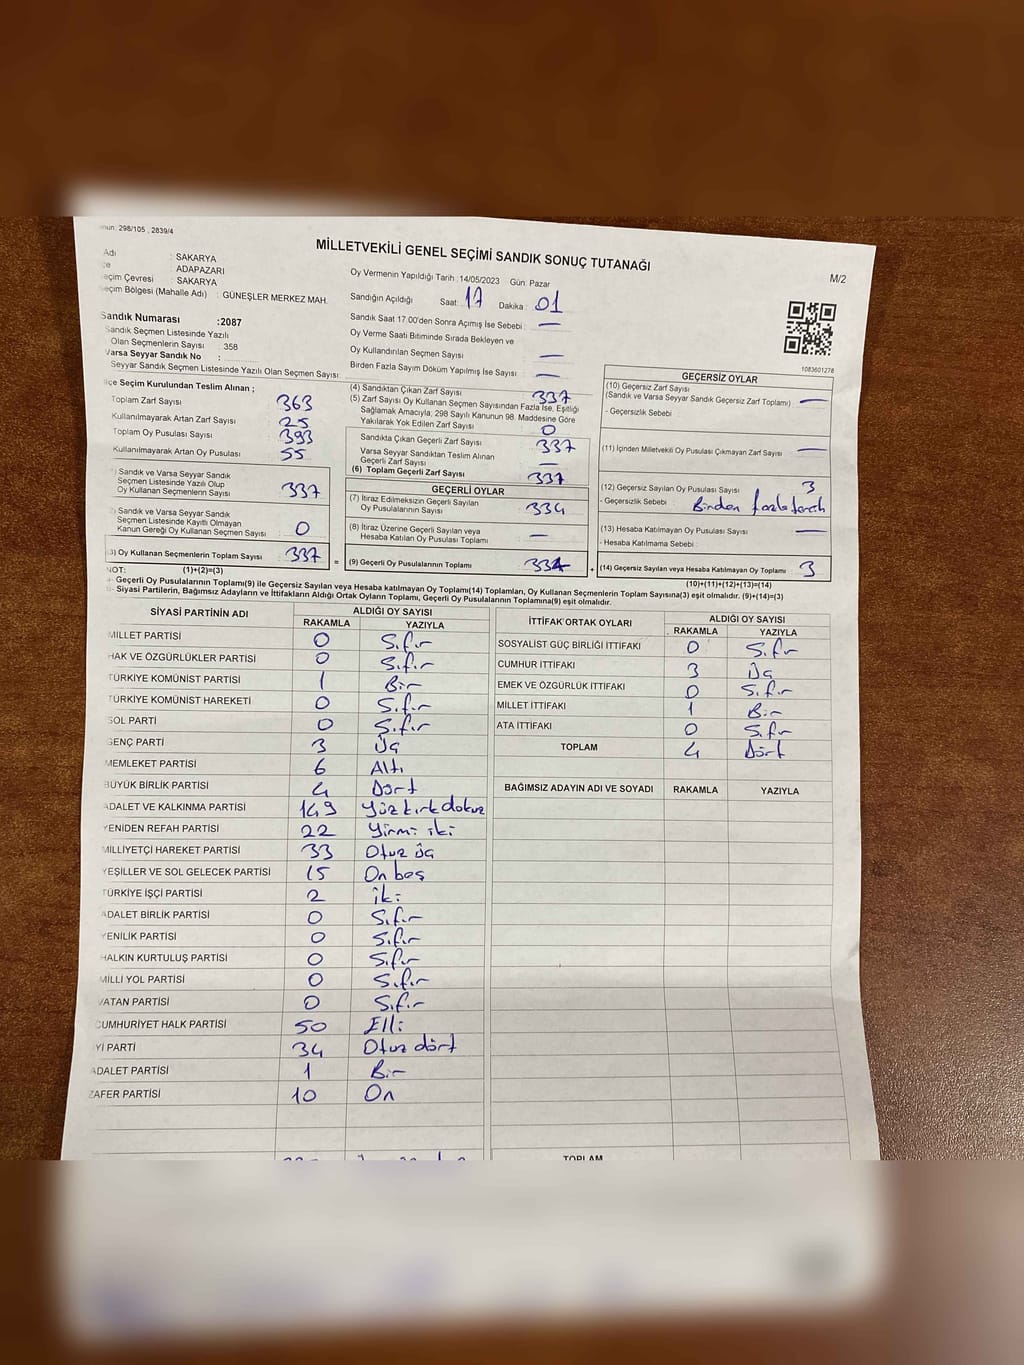 298/105 , 2839/4
MİLLETVEKİLİ GENEL SEÇİMİ SANDIK SONUÇ TUTANAĞI
M/2
Adı : SAKARYA
ADAPAZARI
Seçim Çevresi : SAKARYA
Seçim Bölgesi (Mahalle Adı) : GÜNEŞLER MERKEZ MAH.
Oy Vermenin Yapıldığı Tarih : 14/05/2023 Gün : Pazar
Sandığın Açıldığı Saat : 17 Dakika : 01
Sandık Saat 17.00'den Sonra Açımış İse Sebebi : —
Oy Verme Saati Bitiminde Sırada Bekleyen ve
Oy Kullandırılan Seçmen Sayısı —
Birden Fazla Sayım Döküm Yapılmış İse Sayısı : —
1083601278
Sandık Numarası : 2087
Sandık Seçmen Listesinde Yazılı
Olan Seçmenlerin Sayısı : 358
Varsa Seyyar Sandık No :
Seyyar Sandık Seçmen Listesinde Yazılı Olan Seçmen Sayısı
İlçe Seçim Kurulundan Teslim Alınan ;
Toplam Zarf Sayısı : 363
Kullanılmayarak Artan Zarf Sayısı : 25
Toplam Oy Pusulası Sayısı : 393
Kullanılmayarak Artan Oy Pusulası : 55
1) Sandık ve Varsa Seyyar Sandık
Seçmen Listesinde Yazılı Olup
Oy Kullanan Seçmenlerin Sayısı 337
Sandık ve Varsa Seyyar Sandık
Seçmen Listesinde Kayıtlı Olmayan
Kanun Gereği Oy Kullanan Seçmen Sayısı : 0
(3) Oy Kullanan Seçmenlerin Toplam Sayısı 337
(4) Sandıktan Çıkan Zarf Sayısı : 337
(5) Zarf Sayısı Oy Kullanan Seçmen Sayısından Fazla İse, Eşitliği
Sağlamak Amacıyla, 298 Sayılı Kanunun 98. Maddesine Göre
Yakılarak Yok Edilen Zarf Sayısı : 0
Sandıkta Çıkan Geçerli Zarf Sayısı : 337
Varsa Seyyar Sandıktan Teslim Alınan
Geçerli Zarf Sayısı : —
(6) Toplam Geçerli Zarf Sayısı : 337
GEÇERLİ OYLAR
(7) İtiraz Edilmeksizin Geçerli Sayılan
Oy Pusulalarının Sayısı : 334
(8) İtiraz Üzerine Geçerli Sayılan veya
Hesaba Katılan Oy Pusulası Toplamı : —
= (9) Geçerli Oy Pusulalarının Toplamı : 334 +
GEÇERSİZ OYLAR
(10) Geçersiz Zarf Sayısı
(Sandık ve Varsa Seyyar Sandık Geçersiz Zarf Toplamı) : —
- Geçersizlik Sebebi :
(11) İçinden Milletvekili Oy Pusulası Çıkmayan Zarf Sayısı : —
(12) Geçersiz Sayılan Oy Pusulası Sayısı : 3
- Geçersizlik Sebebi : Birden fazla tercih
(13) Hesaba Katılmayan Oy Pusulası Sayısı : —
- Hesaba Katılmama Sebebi :
(14) Geçersiz Sayılan veya Hesaba Katılmayan Oy Toplamı : 3
NOT: (1)+(2)=(3)
(10)+(11)+(12)+(13)=(14)
- Geçerli Oy Pusulalarının Toplamı(9) ile Geçersiz Sayılan veya Hesaba katılmayan Oy Toplamı(14) Toplamları, Oy Kullanan Seçmenlerin Toplam Sayısına(3) eşit olmalıdır. (9)+(14)=(3)
- Siyasi Partilerin, Bağımsız Adayların ve İttifakların Aldığı Ortak Oyların Toplamı, Geçerli Oy Pusulalarının Toplamına(9) eşit olmalıdır.
SİYASİ PARTİNİN ADI ALDIĞI OY SAYISI
RAKAMLA YAZIYLA
MİLLET PARTİSİ 0 Sıfır
HAK VE ÖZGÜRLÜKLER PARTİSİ 0 Sıfır
TÜRKİYE KOMÜNİST PARTİSİ 1 Bir
TÜRKİYE KOMÜNİST HAREKETİ 0 Sıfır
SOL PARTİ 0 Sıfır
GENÇ PARTİ 3 Üç
MEMLEKET PARTİSİ 6 Altı
BÜYÜK BİRLİK PARTİSİ 4 Dört
ADALET VE KALKINMA PARTİSİ 149 Yüz kırk dokuz
YENİDEN REFAH PARTİSİ 22 Yirmi iki
MİLLİYETÇİ HAREKET PARTİSİ 33 Otuz üç
YEŞİLLER VE SOL GELECEK PARTİSİ 15 On beş
TÜRKİYE İŞÇİ PARTİSİ 2 iki
ADALET BİRLİK PARTİSİ 0 Sıfır
YENİLİK PARTİSİ 0 Sıfır
HALKIN KURTULUŞ PARTİSİ 0 Sıfır
MİLLİ YOL PARTİSİ 0 Sıfır
VATAN PARTİSİ 0 Sıfır
CUMHURİYET HALK PARTİSİ 50 Elli
İYİ PARTİ 34 Otuz dört
ADALET PARTİSİ 1 Bir
ZAFER PARTİSİ 10 On
İTTİFAK ORTAK OYLARI ALDIĞI OY SAYISI
RAKAMLA YAZIYLA
SOSYALİST GÜÇ BİRLİĞİ İTTİFAKI 0 Sıfır
CUMHUR İTTİFAKI 3 Üç
EMEK VE ÖZGÜRLÜK İTTİFAKI 0 Sıfır
MİLLET İTTİFAKI 1 Bir
ATA İTTİFAKI 0 Sıfır
TOPLAM 4 Dört
BAĞIMSIZ ADAYIN ADI VE SOYADI RAKAMLA YAZIYLA
TOPLAM